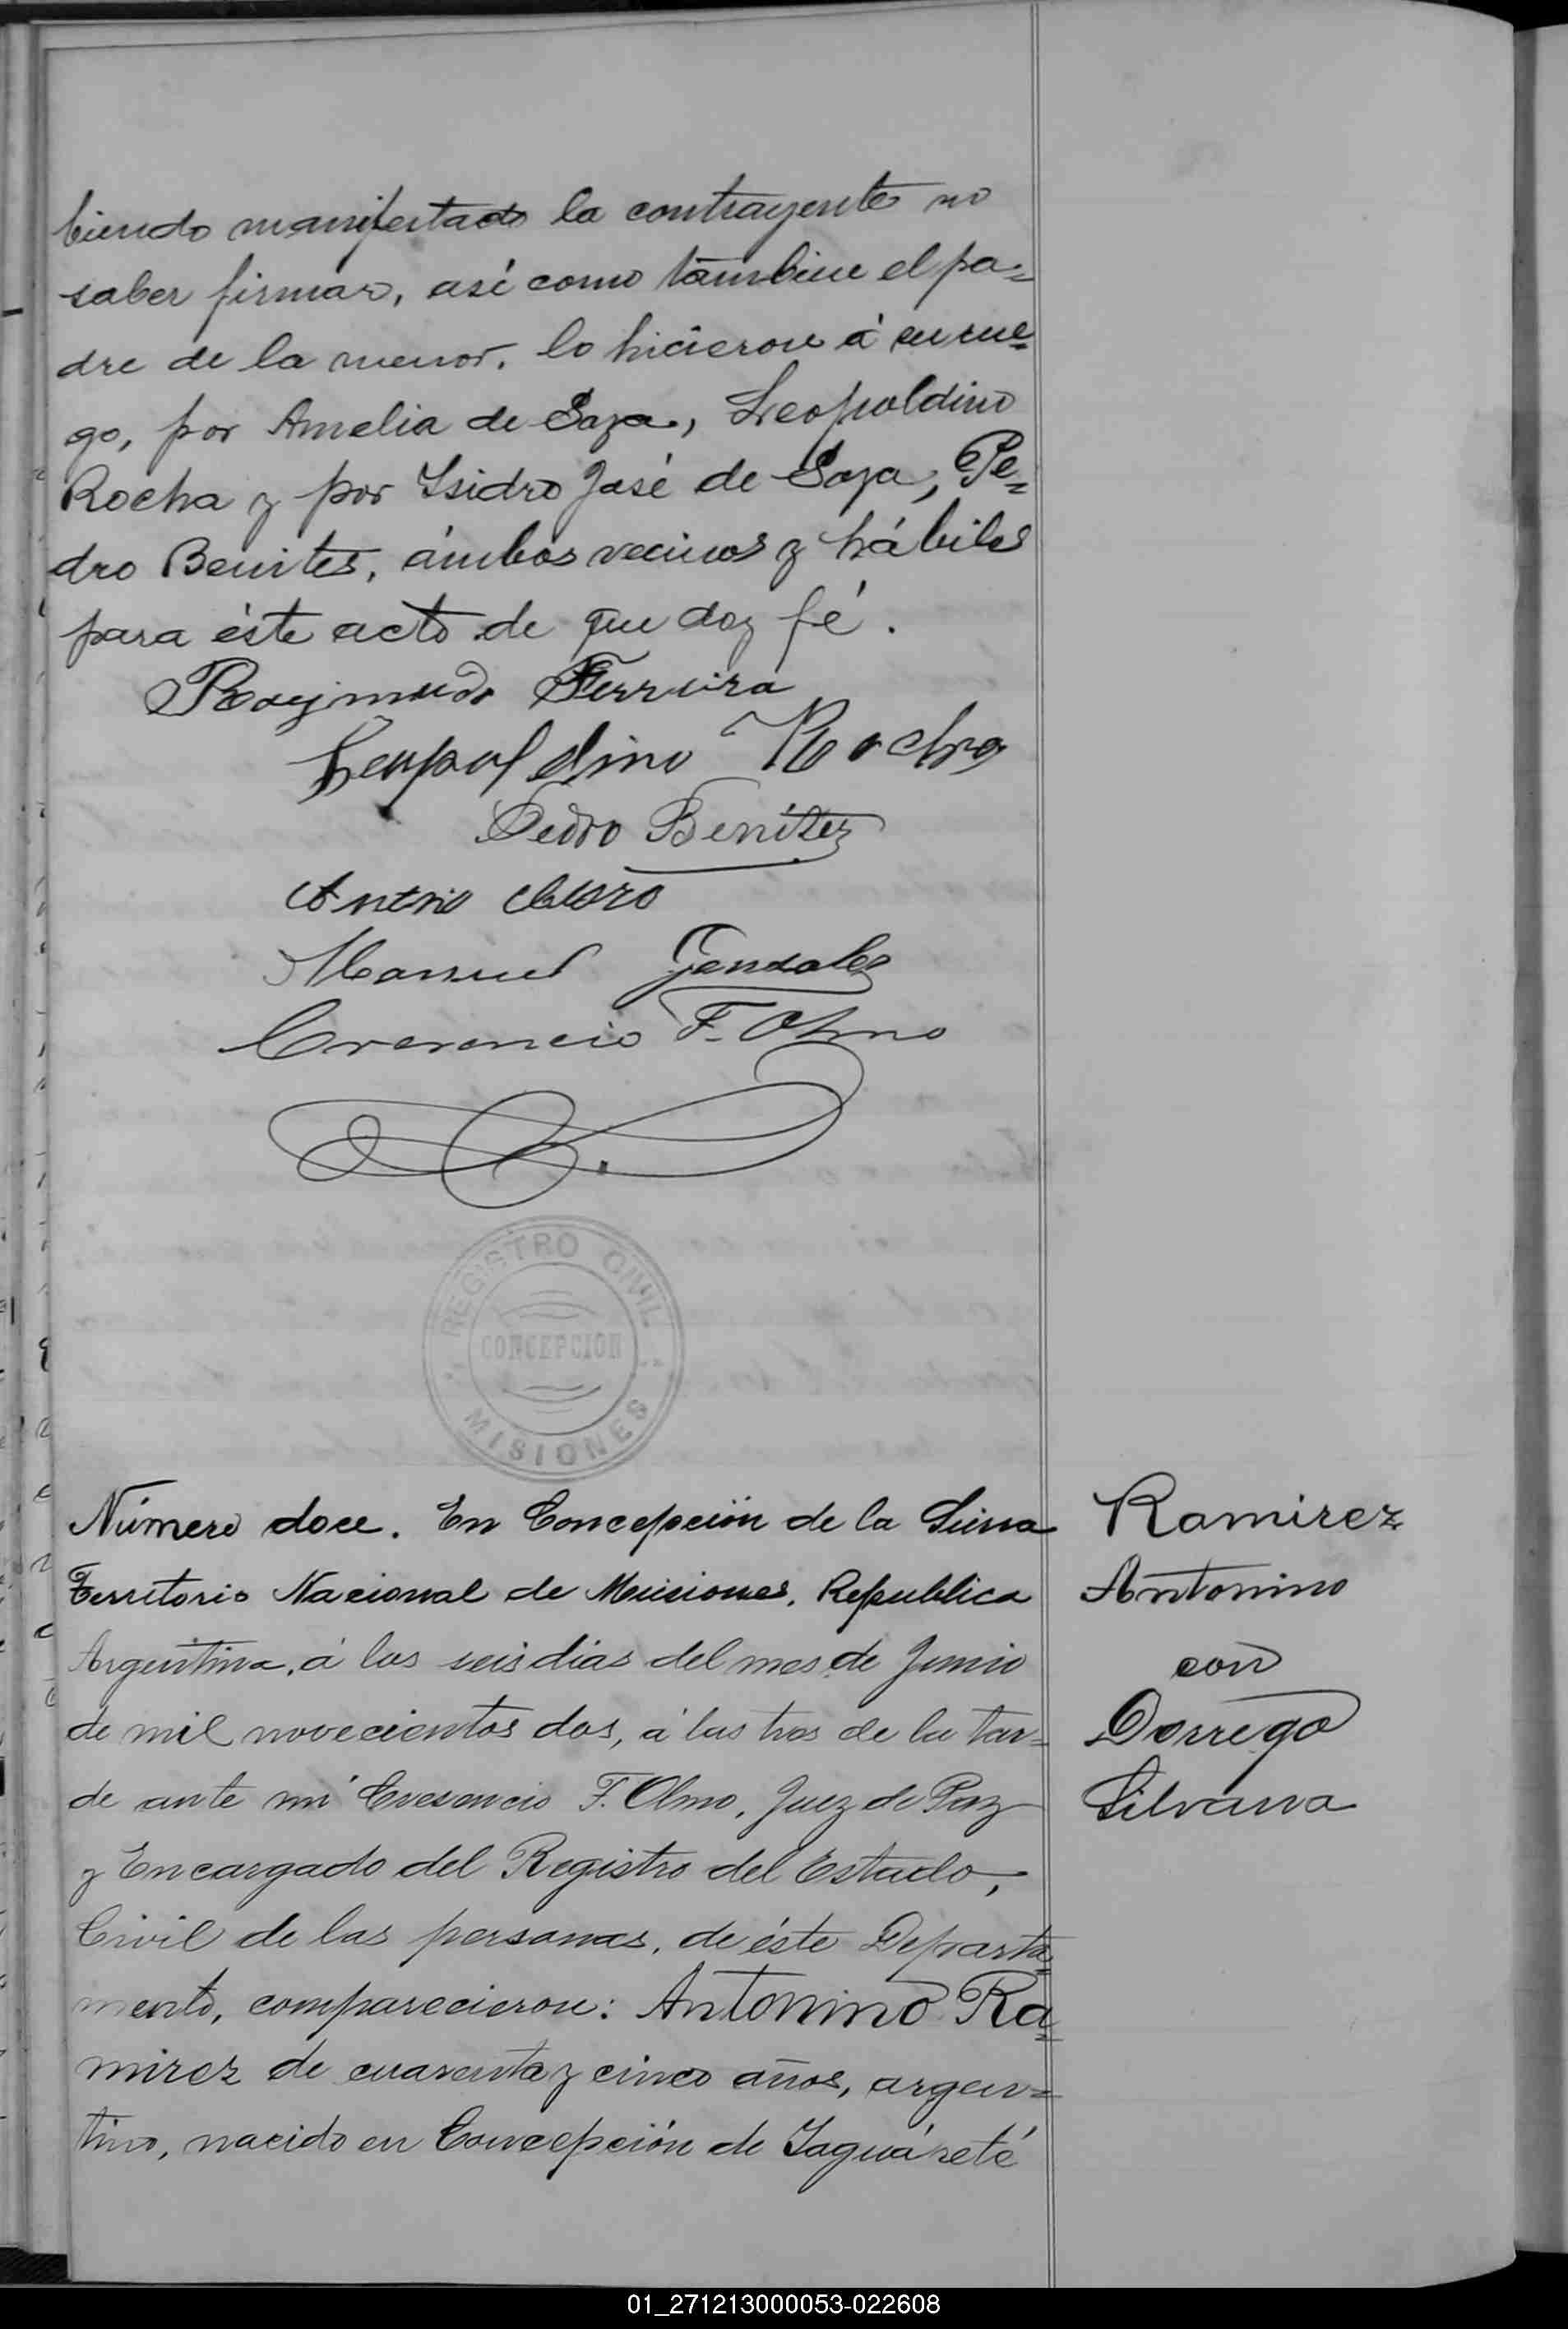 biendo manifestado la contrayente no
saber firmar, asé como tambien el pa=
dre de la menor, lo hicieron á su rue=
go, por Amelia de Soza, Leopoldino
Rocha y por Isidro José de Soza, Pe=
dro Benites, ámbos vecinos y hábiles
para éste acto de que doy fé.
Raymundo Ferreira
Leopoldino Rocha
Pedro Benitez
Manuel Gonzalez
Cresencio F. Olmo
REGISTRO CIVIL
CONCEPCION
MISIONES
Número doce. En Concepción de la Sierra
Territorio Nacional de Misiones, Republica
Argentina, á los seis dias del mes de Junio
de mil novecientos dos, á las tres de la tar=
de ante mi Cresencio F. Olmo, Juez de Paz
y Encargado del Registro del Estado,
Civil de las personas, de éste Departa=
mento, comparecieron: Antonino Ra=
mirez de cuarenta y cinco años, argen=
tino, nacido en Concepción de Yaguáreté
Ramirez
Antonino
con
Dorrego
Silvana
01_271213000053-022608